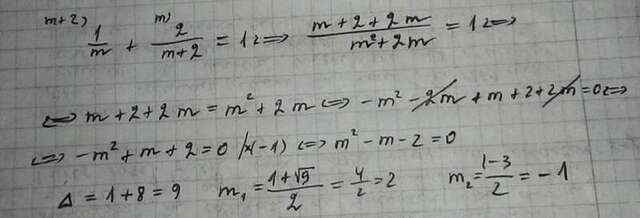 m+2) 1/m + m) 2/(m+2) = 1 ⟺ (m+2+2m)/(m²+2m) = 1 ⟺
⟺ m+2+2m = m²+2m ⟺ -m²-2m+m+2+2m=0 ⟺
⟺ -m²+m+2=0 /·(-1) ⟺ m²-m-2=0
Δ = 1+8 = 9 m₁ = (1+√9)/2 = 4/2 = 2 m₂ = (1-3)/2 = -1